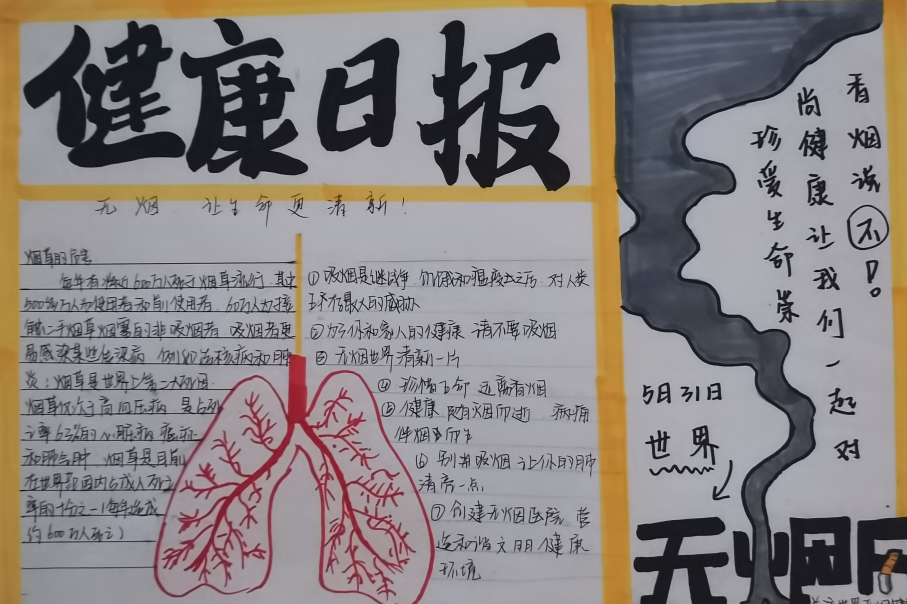 健康日报
无烟 让生命更清新!
烟草的危害
每年有将近600万人死于烟草流行 其中
500多万人为使用者和前使用者 60万人为接
触二手烟草烟雾的非吸烟者 吸烟者更
易感染某些传染病 例如结核病和肺
炎:烟草是世界上第二大死因
烟草仅次于高血压病 是占死
亡率63%的心脏病 癌症
和肺气肿 烟草是目前
在世界范围内占成人死亡
率的十分之一(每年造成
约600万人死亡)
①吸烟是继战争 饥饿和瘟疫之后 对人类
②为了你和家人的健康 请不要吸烟
③无烟世界 清新一片
④珍惜生命 远离香烟
⑤健康 随烟而逝 病痛
伴烟而生
⑥别再吸烟 让你的肺
清亮一点
⑦创建无烟医院 营
造和谐文明健康
环境
看烟说不!
尚健康让我们一起对
珍爱生命崇
5月31日
世界
无烟